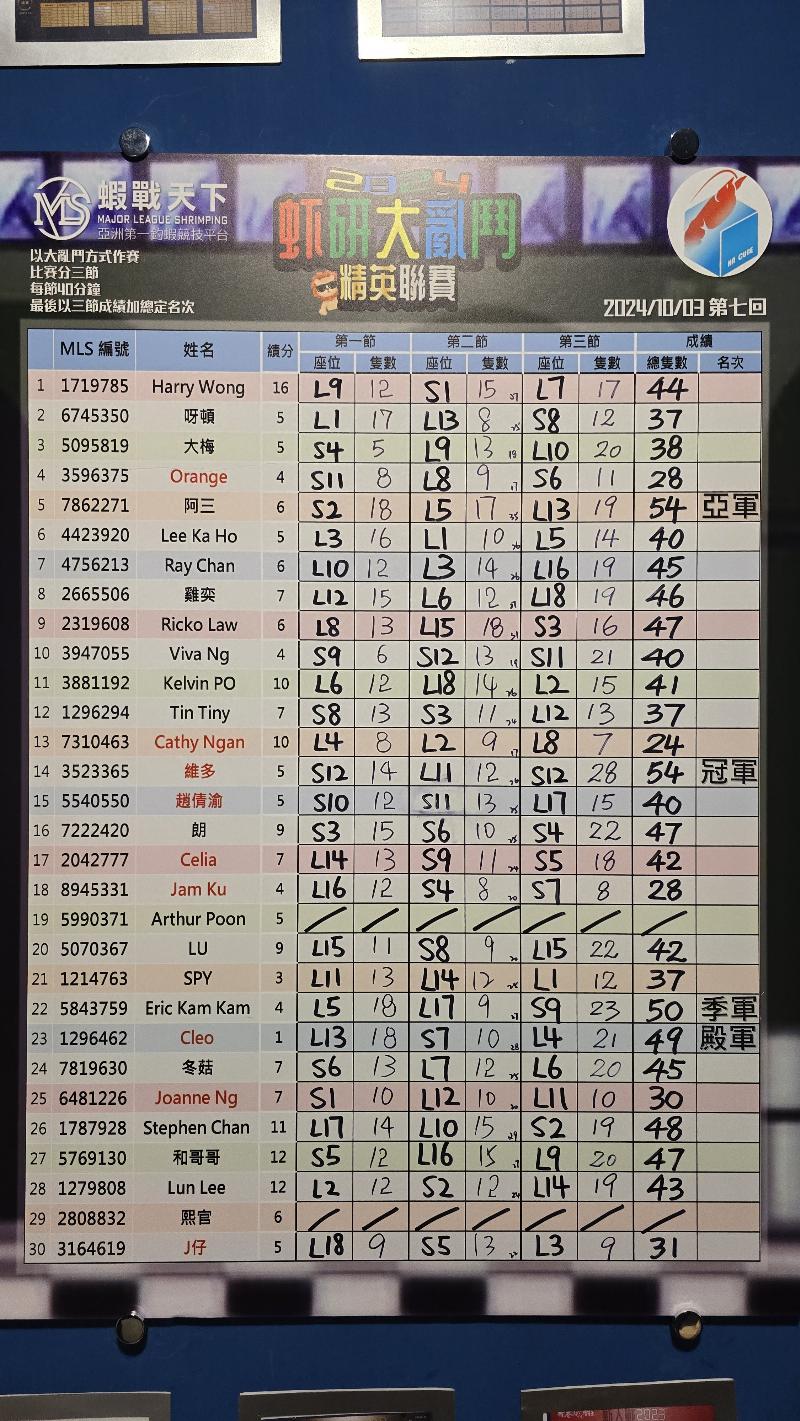 MLS 蝦戰天下
MAJOR LEAGUE SHRIMPING
亞洲第一釣蝦競技平台
2024
虾研大亂鬥
精英聯賽
HA CUBE
以大亂鬥方式作賽
比賽分三節
每節40分鐘
最後以三節成績加總定名次
2024/10/03 第七回
MLS 編號 姓名 績分 第一節 第二節 第三節 成績
座位 隻數 座位 隻數 座位 隻數 總隻數 名次
1 1719785 Harry Wong 16 L9 12 S1 15 27 L7 17 44
2 6745350 呀頓 5 L1 17 L13 8 25 S8 12 37
3 5095819 大梅 5 S4 5 L9 13 18 L10 20 38
4 3596375 Orange 4 S11 8 L8 9 17 S6 11 28
5 7862271 阿三 6 S2 18 L5 17 35 L13 19 54 亞軍
6 4423920 Lee Ka Ho 5 L3 16 L1 10 26 L5 14 40
7 4756213 Ray Chan 6 L10 12 L3 14 26 L16 19 45
8 2665506 雞奕 7 L12 15 L6 12 27 L18 19 46
9 2319608 Ricko Law 6 L8 13 L15 18 31 S3 16 47
10 3947055 Viva Ng 4 S9 6 S12 13 19 S11 21 40
11 3881192 Kelvin PO 10 L6 12 L18 14 26 L2 15 41
12 1296294 Tin Tiny 7 S8 13 S3 11 24 L12 13 37
13 7310463 Cathy Ngan 10 L4 8 L2 9 17 L8 7 24
14 3523365 維多 5 S12 14 L11 12 26 S12 28 54 冠軍
15 5540550 趙倩渝 5 S10 12 S11 13 25 L17 15 40
16 7222420 朗 9 S3 15 S6 10 25 S4 22 47
17 2042777 Celia 7 L14 13 S9 11 24 S5 18 42
18 8945331 Jam Ku 4 L16 12 S4 8 20 S7 8 28
19 5990371 Arthur Poon 5 / / / / / / /
20 5070367 LU 9 L15 11 S8 9 20 L15 22 42
21 1214763 SPY 3 L11 13 L14 12 25 L1 12 37
22 5843759 Eric Kam Kam 4 L5 18 L17 9 27 S9 23 50 季軍
23 1296462 Cleo 1 L13 18 S7 10 28 L4 21 49 殿軍
24 7819630 冬菇 7 S6 13 L7 12 25 L6 20 45
25 6481226 Joanne Ng 7 S1 10 L12 10 20 L11 10 30
26 1787928 Stephen Chan 11 L17 14 L10 15 29 S2 19 48
27 5769130 和哥哥 12 S5 12 L16 15 27 L9 20 47
28 1279808 Lun Lee 12 L2 12 S2 12 24 L14 19 43
29 2808832 熙官 6 / / / / / / /
30 3164619 J仔 5 L18 9 S5 13 22 L3 9 31
2023